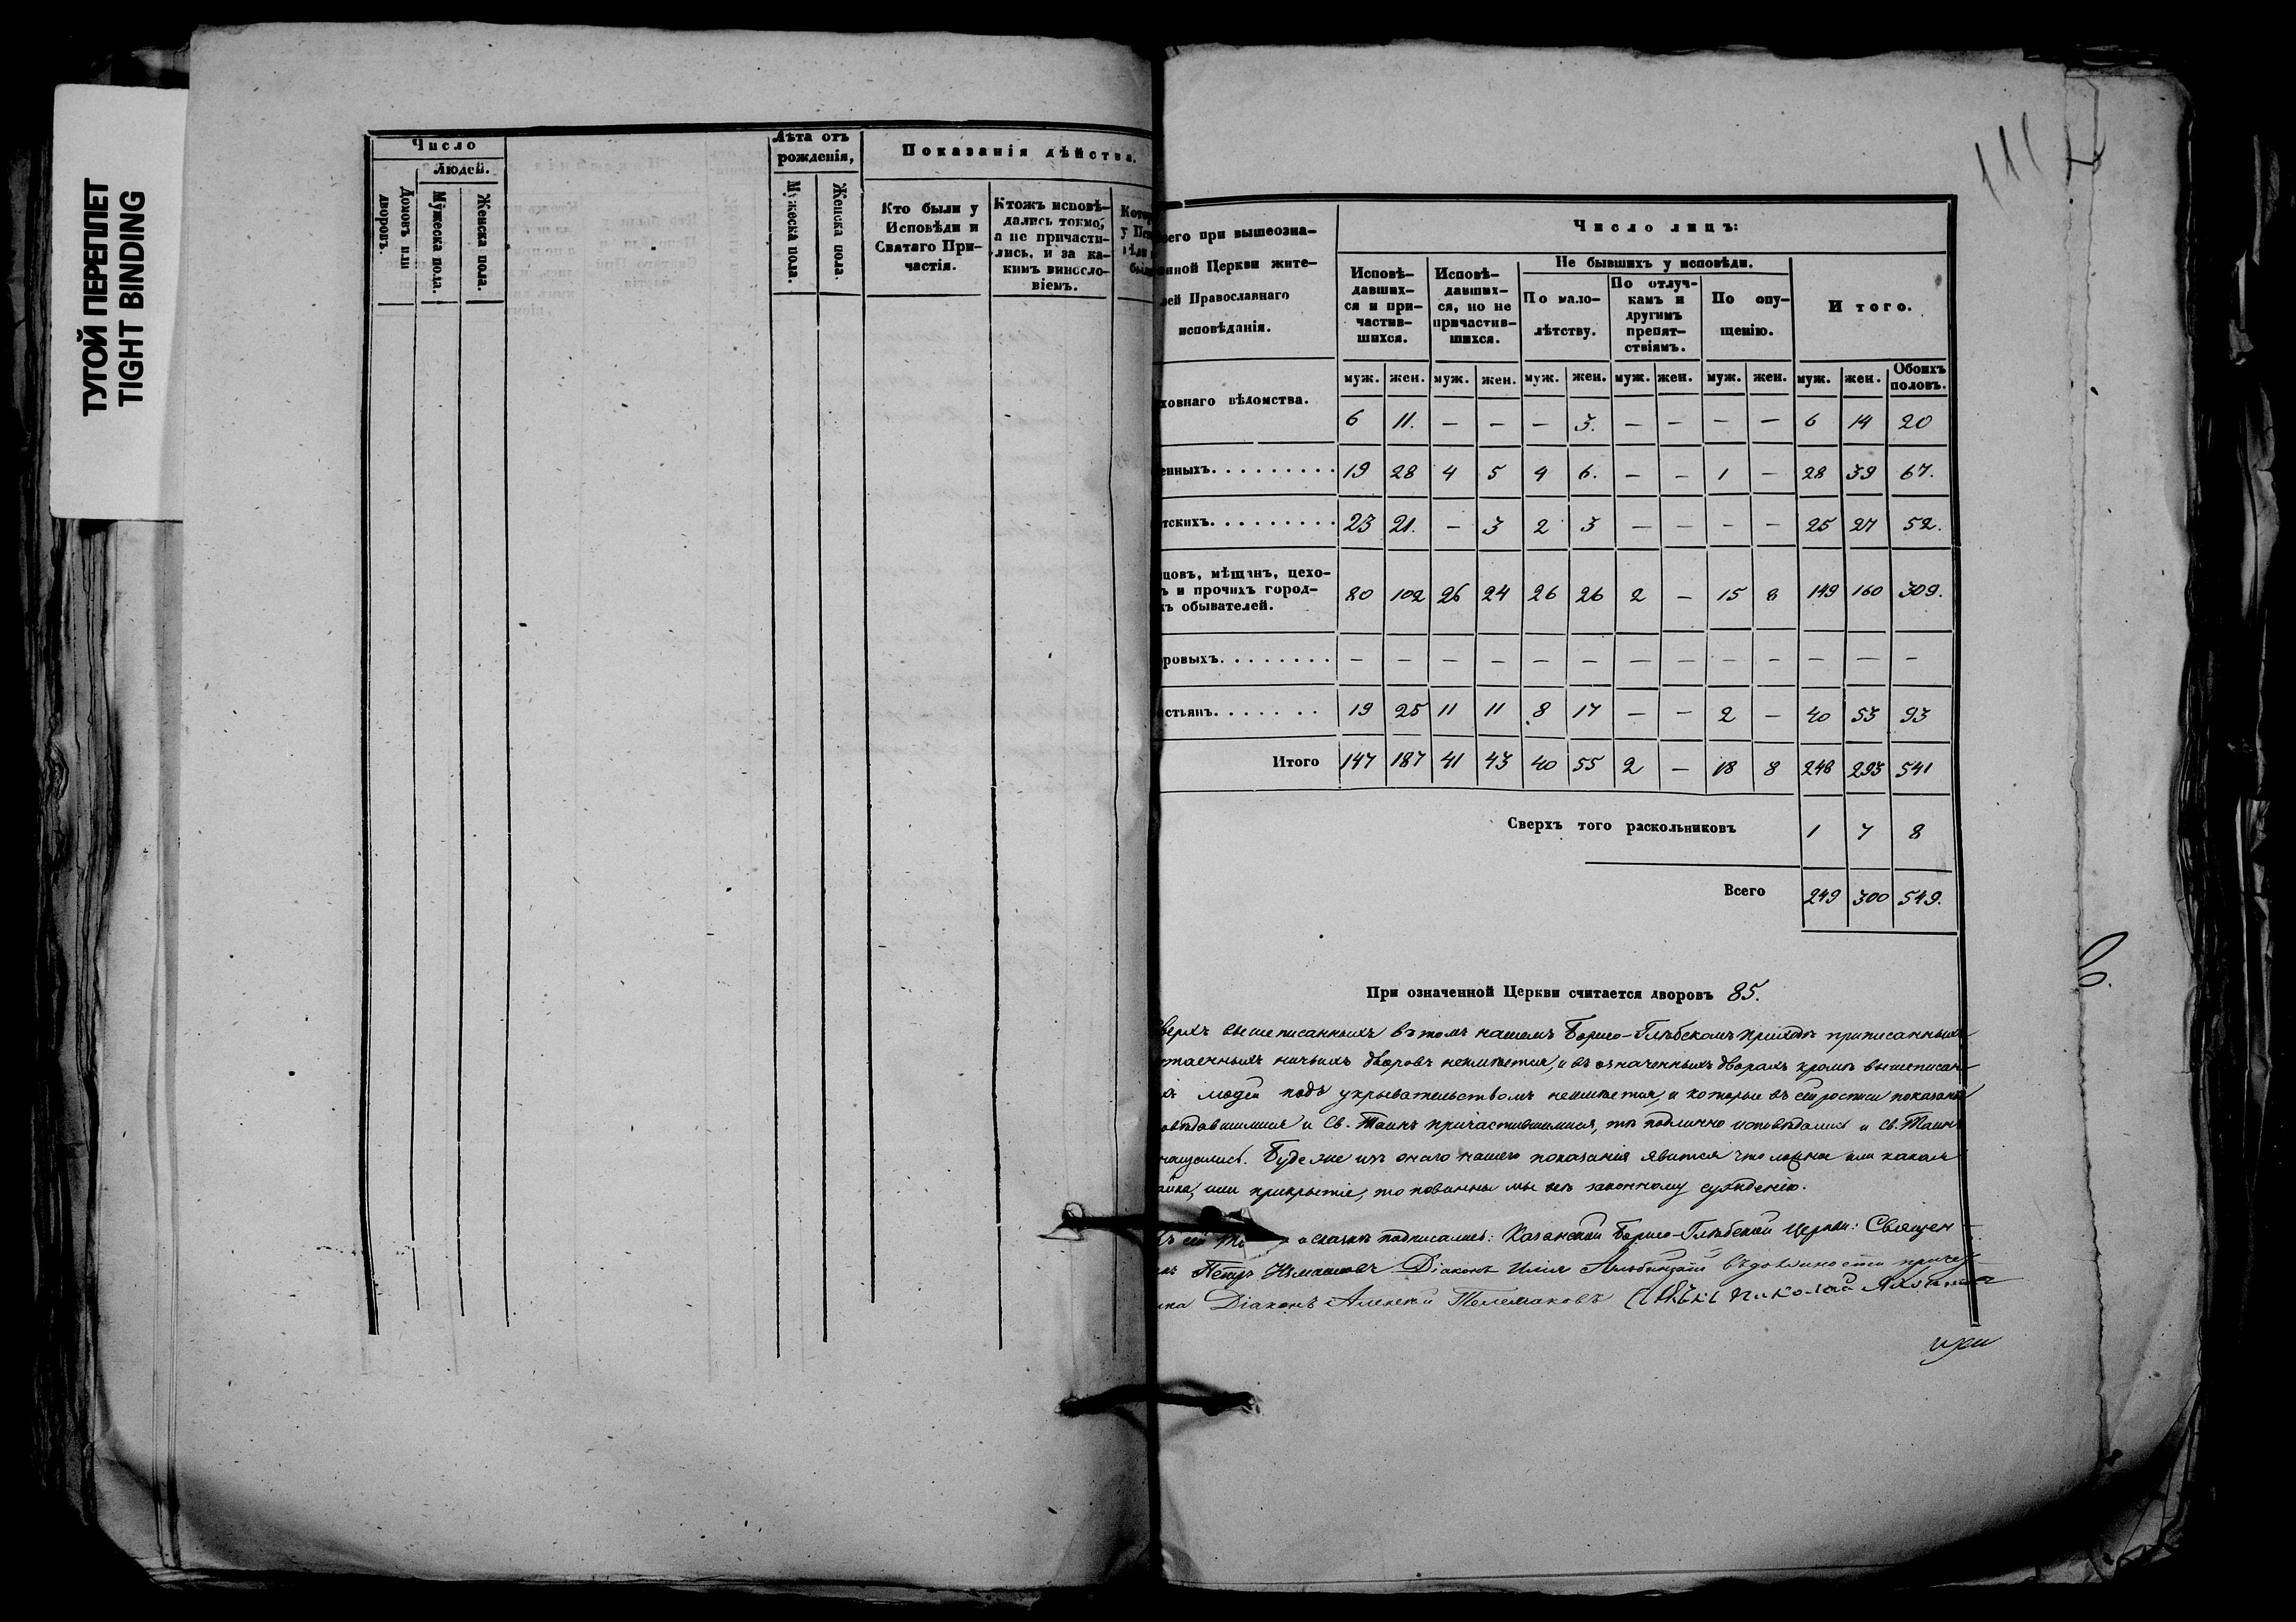 ТУГОЙ ПЕРЕПЛЕТ
TIGHT BINDING
Число
Людей.
Домовъ или дворовъ.
Мужеска пола.
Женска пола.
Лѣта отъ рожденія,
Мужеска пола.
Женска пола.
Показанія дѣйства.
Кто были у
Исповѣди и
Святаго При-
частія.
Ктожъ исповѣ-
дались токмо,
а не причасти-
лись, и за ка-
кимъ винosло-
віемъ.
111
его при вышеозна-
нной Церкви жите-
лей Православнаго
исповѣданія.
Число лицъ:
Исповѣ-
давших-
ся и при-
частив-
шихся.
Исповѣ-
давших-
ся, но не
причастив-
шихся.
Не бывшихъ у исповѣди.
По мало-
лѣтству.
По отлуч-
камъ и
другимъ
препят-
ствіямъ.
По опу-
щенію.
Итого.
муж. жен. муж. жен. муж. жен. муж. жен. муж. жен. муж. жен. Обоихъ половъ.
ховнаго вѣдомства.
6 11. — — — 3. — — — — 6 14 20
енныхъ. 19 28 4 5 4 6. — — 1 — 28 39 67.
тскихъ. 23 21. — 3 2 3 — — — — 25 27 52.
цовъ, мѣщанъ, цехо-
ъ и прочихъ город-
хъ обывателей.
80 102 26 24 26 26 2 — 15 8 149 160 309.
ровыхъ. — — — — — — — — — — — — —
стьянъ. 19 25 11 11 8 17 — — 2 — 40 53 93
Итого 147 187 41 43 40 55 2 — 18 8 248 293 541
Сверхъ того раскольниковъ 1 7 8
Всего 249 300 549.
При означенной Церкви считается дворовъ 85.
верхъ вышеписанныхъ въ томъ нашемъ Борисо-Глѣбскомъ приходѣ приписанныхъ
таенныхъ ничьихъ дворовъ неимѣется, и въ означенныхъ дворахъ кромѣ вышеписан-
хъ людей подъ укрывательствомъ неимѣется, и которые въ сей росписи показаны
овѣдавшимися и Св. Таинъ причастившимися, тѣ подлинно исповѣдались и Св. Таинъ
чащались. Буде же изъ онаго нашего показанія явится что ложное или какая
айка, или прикрытіе, то повинны мы законному сужденію.
сей подписались: Казанской Борисо-Глѣбской Церкви: Священ
Петръ Діаконъ Илія въ должности причет
ика Діаконъ Алексѣй Телемаковъ Николай